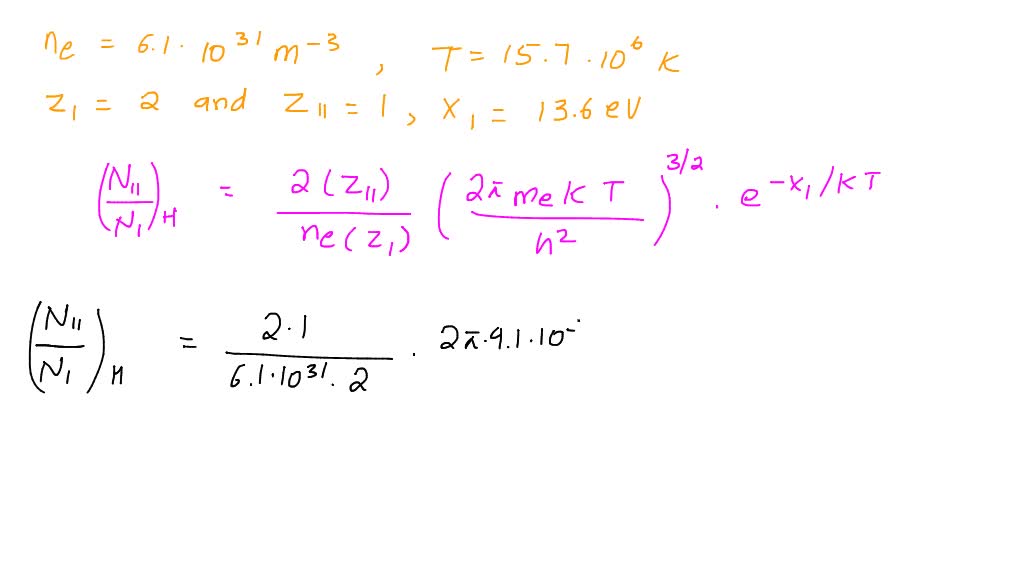 ne = 6.1 · 10^31 m^-3 , T = 15.7 · 10^6 K
Z_I = 2 and Z_II = 1 , X_I = 13.6 eV
(N_II / N_I)_H = 2(Z_II) / ne(Z_I) (2π me K T / h^2)^3/2 · e^-X_I/KT
(N_II / N_I)_H = 2·1 / 6.1·10^31 · 2 · 2π·9.1·10^-